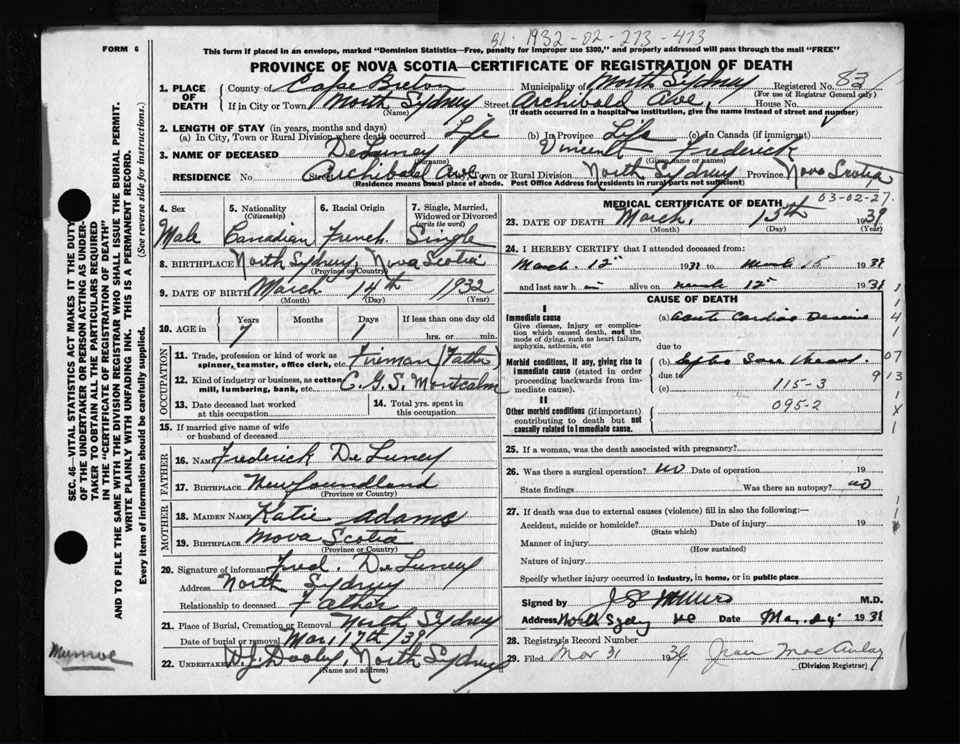 51 · 1932-02-273-473
FORM 6
This form if placed in an envelope, marked "Dominion Statistics—Free, penalty for improper use $300," and properly addressed will pass through the mail "FREE"
PROVINCE OF NOVA SCOTIA—CERTIFICATE OF REGISTRATION OF DEATH
1. PLACE OF DEATH
County of Cape Breton Municipality of North Sydney Registered No. 83
(For use of Registrar General only)
If in City or Town North Sydney Street Archibald Ave, House No.
(Name) (If death occurred in a hospital or institution, give the name instead of street and number)
2. LENGTH OF STAY (in years, months and days)
(a) In City, Town or Rural Division where death occurred Life (b) In Province Life (c) In Canada (if immigrant)
3. NAME OF DECEASED DeLuney Vincent Frederick
(Surname) (Given name or names)
RESIDENCE No. Street Archibald Ave. Town or Rural Division North Sydney Province Nova Scotia
(Residence means usual place of abode. Post Office Address for residents in rural parts not sufficient)
4. Sex 5. Nationality (Citizenship) 6. Racial Origin 7. Single, Married, Widowed or Divorced (write the word)
Male Canadian French Single
8. BIRTHPLACE North Sydney, Nova Scotia
(Province or Country)
9. DATE OF BIRTH March 14th 1932
(Month) (Day) (Year)
10. AGE in Years Months Days If less than one day
7 1 hrs. or min.
OCCUPATION
11. Trade, profession or kind of work as spinner, teamster, office clerk, etc. Fireman (Father)
12. Kind of industry or business, as cotton mill, lumbering, bank, etc. C.G.S. Montcalm
13. Date deceased last worked at this occupation 14. Total yrs. spent in this occupation
15. If married give name of wife or husband of deceased
FATHER
16. Name Frederick DeLuney
17. BIRTHPLACE Newfoundland
(Province or Country)
MOTHER
18. MAIDEN NAME Katie Adams
19. BIRTHPLACE Nova Scotia
(Province or Country)
20. Signature of informant Fred. DeLuney
Address North Sydney
Relationship to deceased Father
21. Place of Burial, Cremation or Removal North Sydney
Date of burial or removal Mar. 17th/39
22. UNDERTAKER D.J. Dooley, North Sydney
(Name and address)
MEDICAL CERTIFICATE OF DEATH
03-02-27.
23. DATE OF DEATH March, 15th 1939
(Month) (Day) (Year)
24. I HEREBY CERTIFY that I attended deceased from:
March. 12" 1938 to March 15 1938
and last saw him alive on March 15" 1938
CAUSE OF DEATH
I
Immediate cause
Give disease, injury or complication which caused death, not the mode of dying, such as heart failure, asphyxia, asthenia, etc
(a) Acute Cardiac Disease
due to
Morbid conditions, if any, giving rise to immediate cause (stated in order proceeding backwards from immediate cause).
(b) Septic Sore Throat.
due to
(c) 115-3
II
Other morbid conditions (if important) contributing to death but not causally related to immediate cause.
095-2
25. If a woman, was the death associated with pregnancy?
26. Was there a surgical operation? no Date of operation 19
State findings Was there an autopsy? no
27. If death was due to external causes (violence) fill in also the following:—
Accident, suicide or homicide? Date of injury 19
(State which)
Manner of injury
(How sustained)
Nature of injury
Specify whether injury occurred in industry, in home, or in public place
Signed by M.D.
Address North Sydney NS Date Mar. 1938
28. Registrar's Record Number
29. Filed Mar 31 1939 Jean MacAulay
(Division Registrar)
SEC. 46—VITAL STATISTICS ACT MAKES IT THE DUTY OF THE UNDERTAKER OR PERSON ACTING AS UNDERTAKER TO OBTAIN ALL THE PARTICULARS REQUIRED IN THE "CERTIFICATE OF REGISTRATION OF DEATH" AND TO FILE THE SAME WITH THE DIVISION REGISTRAR WHO SHALL ISSUE THE BURIAL PERMIT.
WRITE PLAINLY WITH UNFADING INK. THIS IS A PERMANENT RECORD.
Every item of information should be carefully supplied.
(See reverse side for instructions.)
Munroe